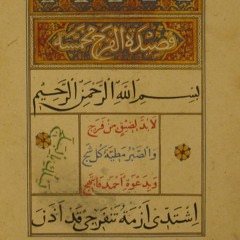 قصيدة الفرج مخمسة
بسم الله الرحمن الرحيم
لا بد لضيق من فرج
والصبر مطية كل شج
وبدعوة احمد فانتهج
اشتدي ازمة تنفرجي قد آذن